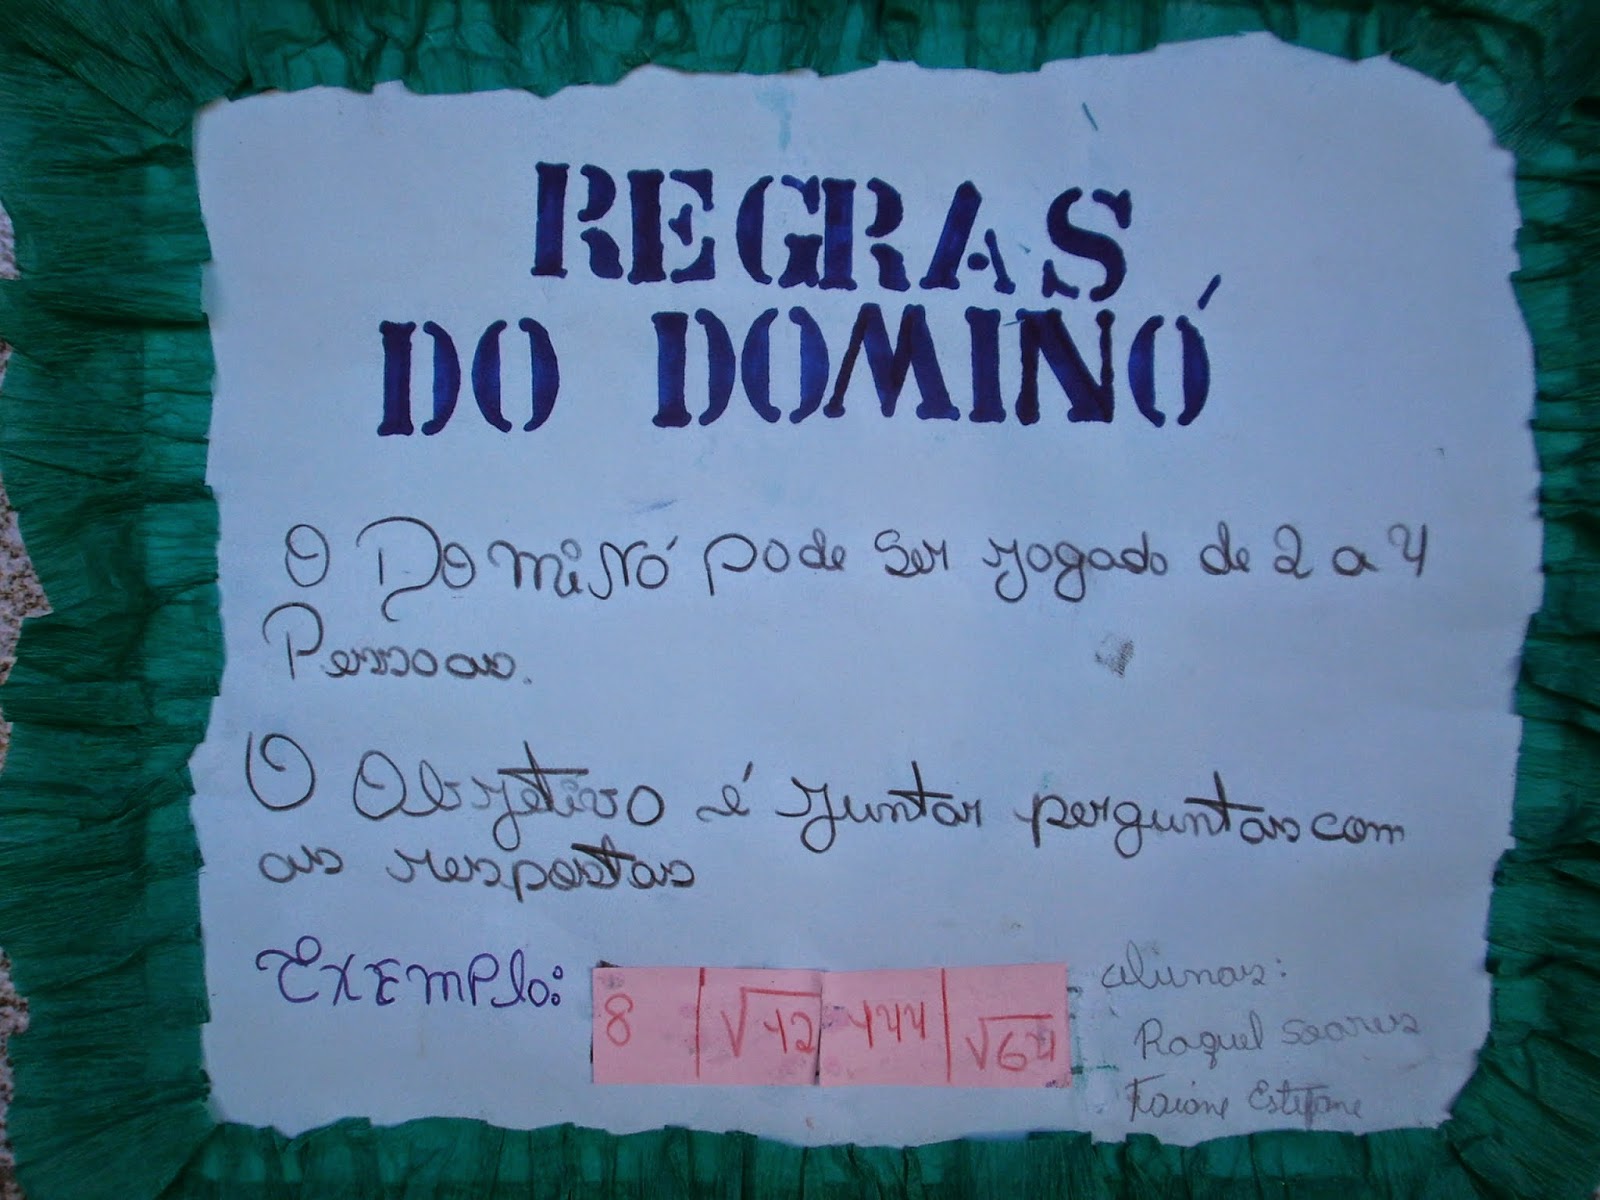 REGRAS
DO DOMINÓ
O DOmiNó pode ser jogado de 2 a 4
Pessoas.
O Objetivo é juntar perguntas com
as respostas
EXEMPlo: 8 √12 144 √64
alunas:
Raquel Soares
Estefane